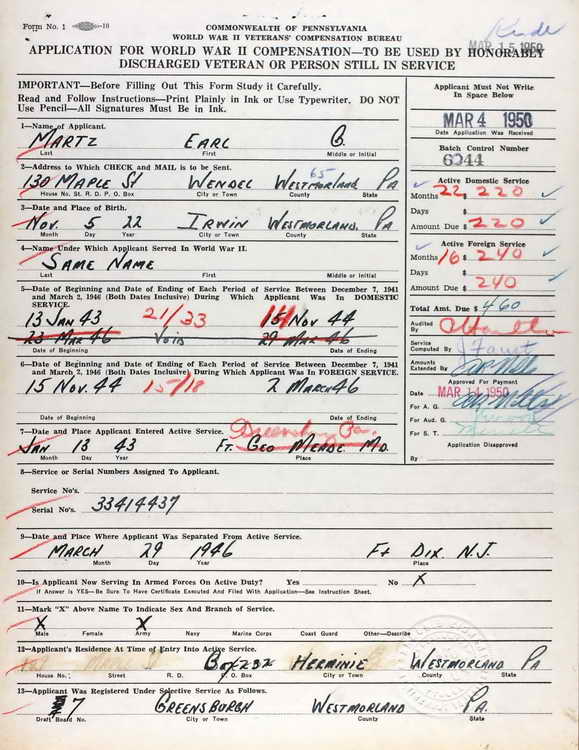 Form No. 1
COMMONWEALTH OF PENNSYLVANIA
WORLD WAR II VETERANS' COMPENSATION BUREAU
APPLICATION FOR WORLD WAR II COMPENSATION—TO BE USED BY HONORABLY
DISCHARGED VETERAN OR PERSON STILL IN SERVICE
MAR 15 1950
IMPORTANT—Before Filling Out This Form Study it Carefully.
Read and Follow Instructions—Print Plainly in Ink or Use Typewriter. DO NOT
Use Pencil—All Signatures Must Be in Ink.
Applicant Must Not Write
In Space Below
MAR 4 1950
Date Application Was Received
Batch Control Number
6244
Active Domestic Service
Months 22 $ 220
Days $
Amount Due $ 220
Active Foreign Service
Months 16 $ 240
Days $
Amount Due $ 240
Total Amt. Due $ 460
Audited By
Service
Computed By
Amounts
Extended By
Approved For Payment
Date MAR 14 1950
For A. G.
For Aud. G.
For S. T.
Application Disapproved
By
1—Name of Applicant.
MARTZ EARL G.
Last First Middle or Initial
2—Address to Which CHECK and MAIL is to be Sent.
65
130 MAPLE ST WENDEL WESTMORLAND PA
House No. St. R. D. P. O. Box City or Town County State
3—Date and Place of Birth.
NOV. 5 22 IRWIN WESTMORLAND, PA
Month Day Year City or Town County State
4—Name Under Which Applicant Served In World War II.
SAME NAME
Last First Middle or Initial
5—Date of Beginning and Date of Ending of Each Period of Service Between December 7, 1941
and March 2, 1946 (Both Dates Inclusive) During Which Applicant Was In DOMESTIC
SERVICE.
13 JAN 43 21/33 15 NOV 44
23 MAR 46 VOID 29 MAR 46
Date of Beginning Date of Ending
6—Date of Beginning and Date of Ending of Each Period of Service Between December 7, 1941
and March 2, 1946 (Both Dates Inclusive) During Which Applicant Was In FOREIGN SERVICE.
15 NOV. 44 15/18 2 MARCH 46
Date of Beginning Date of Ending
7—Date and Place Applicant Entered Active Service.
Greensburg Pa.
JAN 13 43 FT. GEO MEADE MD.
Month Day Year Place
8—Service or Serial Numbers Assigned To Applicant.
Service No's.
Serial No's. 33414437
9—Date and Place Where Applicant Was Separated From Active Service.
MARCH 29 1946 Ft DIX N.J.
Month Day Year Place
10—Is Applicant Now Serving In Armed Forces On Active Duty? Yes No X
If Answer is YES—Be Sure To Have Certificate Executed And Filed With Application—See Instruction Sheet.
11—Mark "X" Above Name To Indicate Sex And Branch of Service.
X X
Male Female Army Navy Marine Corps Coast Guard Other—Describe
12—Applicant's Residence At Time of Entry Into Active Service.
BOX 232 HERMINIE WESTMORLAND PA
House No. Street R. D. P. O. Box City or Town County State
13—Applicant Was Registered Under Selective Service As Follows.
7 GREENSBURGH WESTMORLAND PA.
Draft Board No. City or Town County State